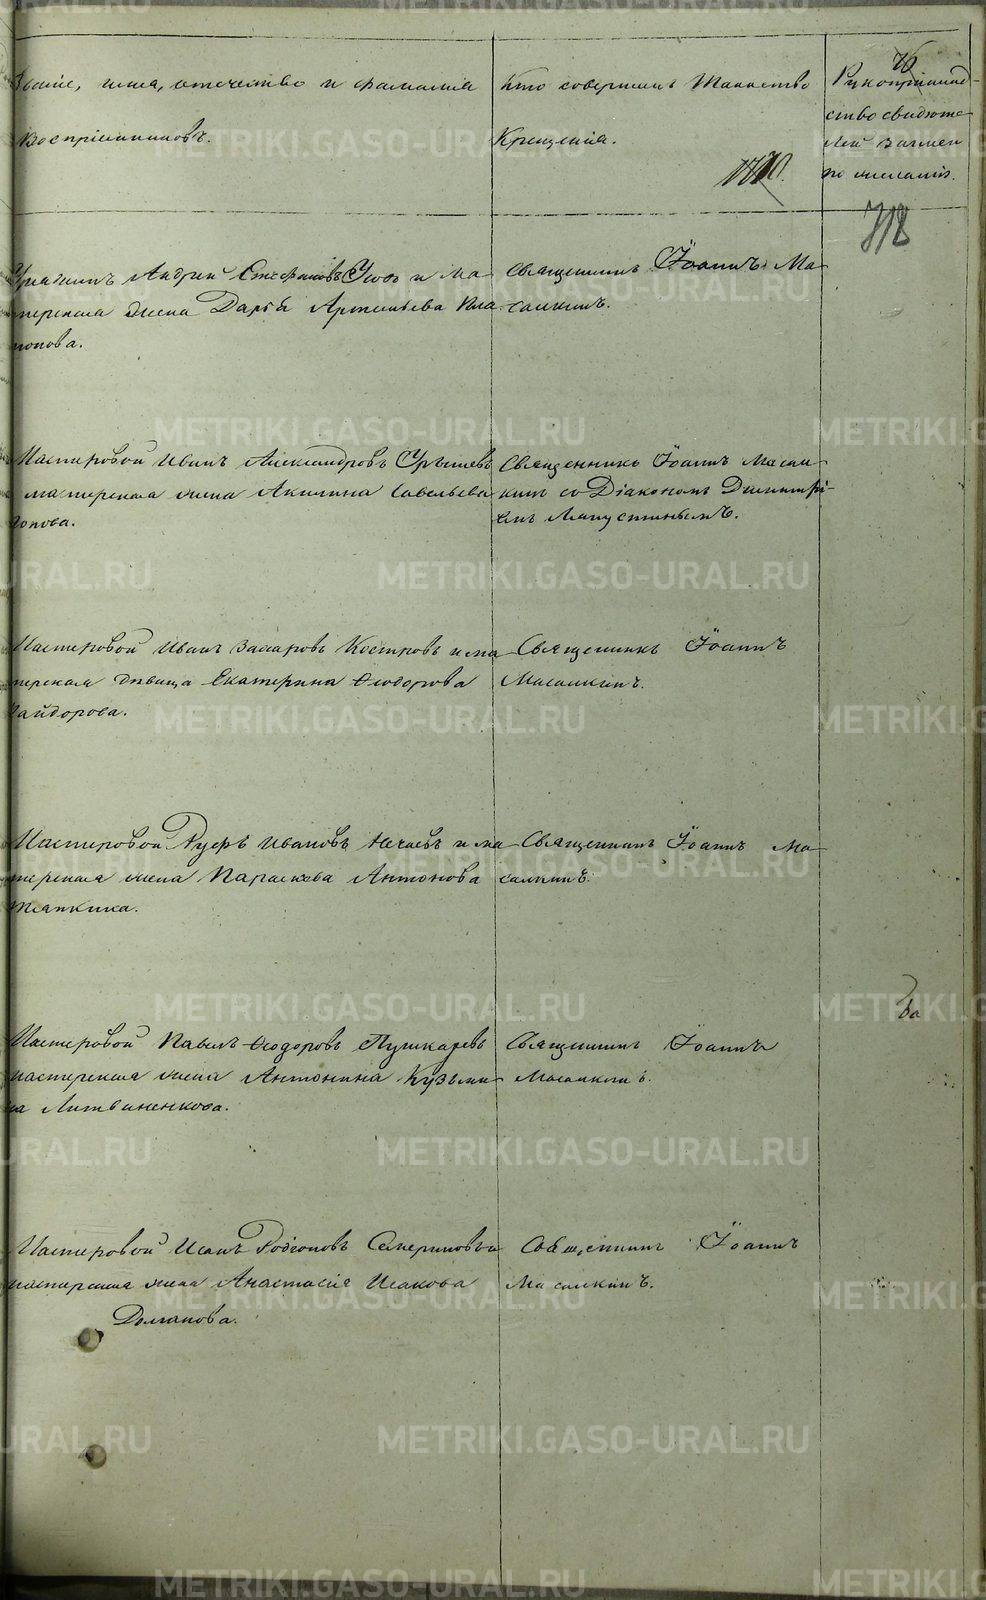 Званіе, имя, отчество и фамилія
Воспріемниковъ.
Кто совершалъ Таинство
Крещенія.
Рукоприклад-
ство свидѣте-
лей записи
по желанію.
718
Андрей Стефановъ и ма-
стерскаго жена Дарья Артемьева
Священникъ Іоаннъ Ма-
салкинъ.
Мастеровой Иванъ Александровъ
мастерскаго жена Акилина Савельева
Попова.
Священникъ Іоаннъ Масал-
кинъ со Діакономъ Димитрі-
емъ Лапустинымъ.
Мастеровой Иванъ Костровъ и ма-
стерская дѣвица Екатерина Ѳеодорова
Кайдорова.
Священникъ Іоаннъ
Масалкинъ.
Мастеровой Руфъ Ивановъ Нечаевъ и ма-
стерская жена Параскова Антонова
Тяпкина.
Священникъ Іоаннъ Ма-
салкинъ.
Мастеровой Павелъ Ѳеодоровъ Пушкаревъ
мастерская жена Антонина Кузьми-
на Литвиненкова.
Священникъ Іоаннъ
Масалкинъ.
Мастеровой Исакъ Родіоновъ
мастерская жена Анастасія Исакова
Долганова.
Священникъ Іоаннъ
Масалкинъ.
METRIKI.GASO-URAL.RU